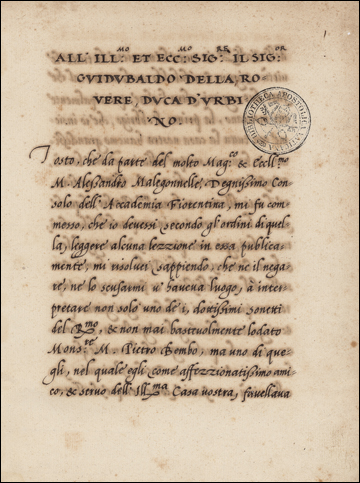 1
ALL' ILL:MO ET ECC:MO SIG:RE IL SIG:OR
GVIDVBALDO DELLA, RO-
VERE, DVCA D'VRBI
NO.
BIBLIOTHECA APOSTOLICA VATICANA
Tosto, che da parte del molto Mag:co & Eccll:mo
M. Alessandro Malegonnelle, Degnissimo Con
solo dell' Accademia Fiorentina, mi fu com
messo, che io devessi secondo gl'ordini di quel
la, leggere alcuna lezzione in essa publica-
mente, mi risolvei sappiendo, che ne il nega-
re, ne' lo scusarmi vi haveva luogo, à inter-
pretare non solo uno de' i, dottissimi sonetti
del Rmo, & non mai bastevolmente lodato
Mons:re M. Pietro Bembo, ma uno di que-
gli, nel quale egli come affezzionatissimo ami-
co, & servo dell' Ill:ma Casa vostra, favellava